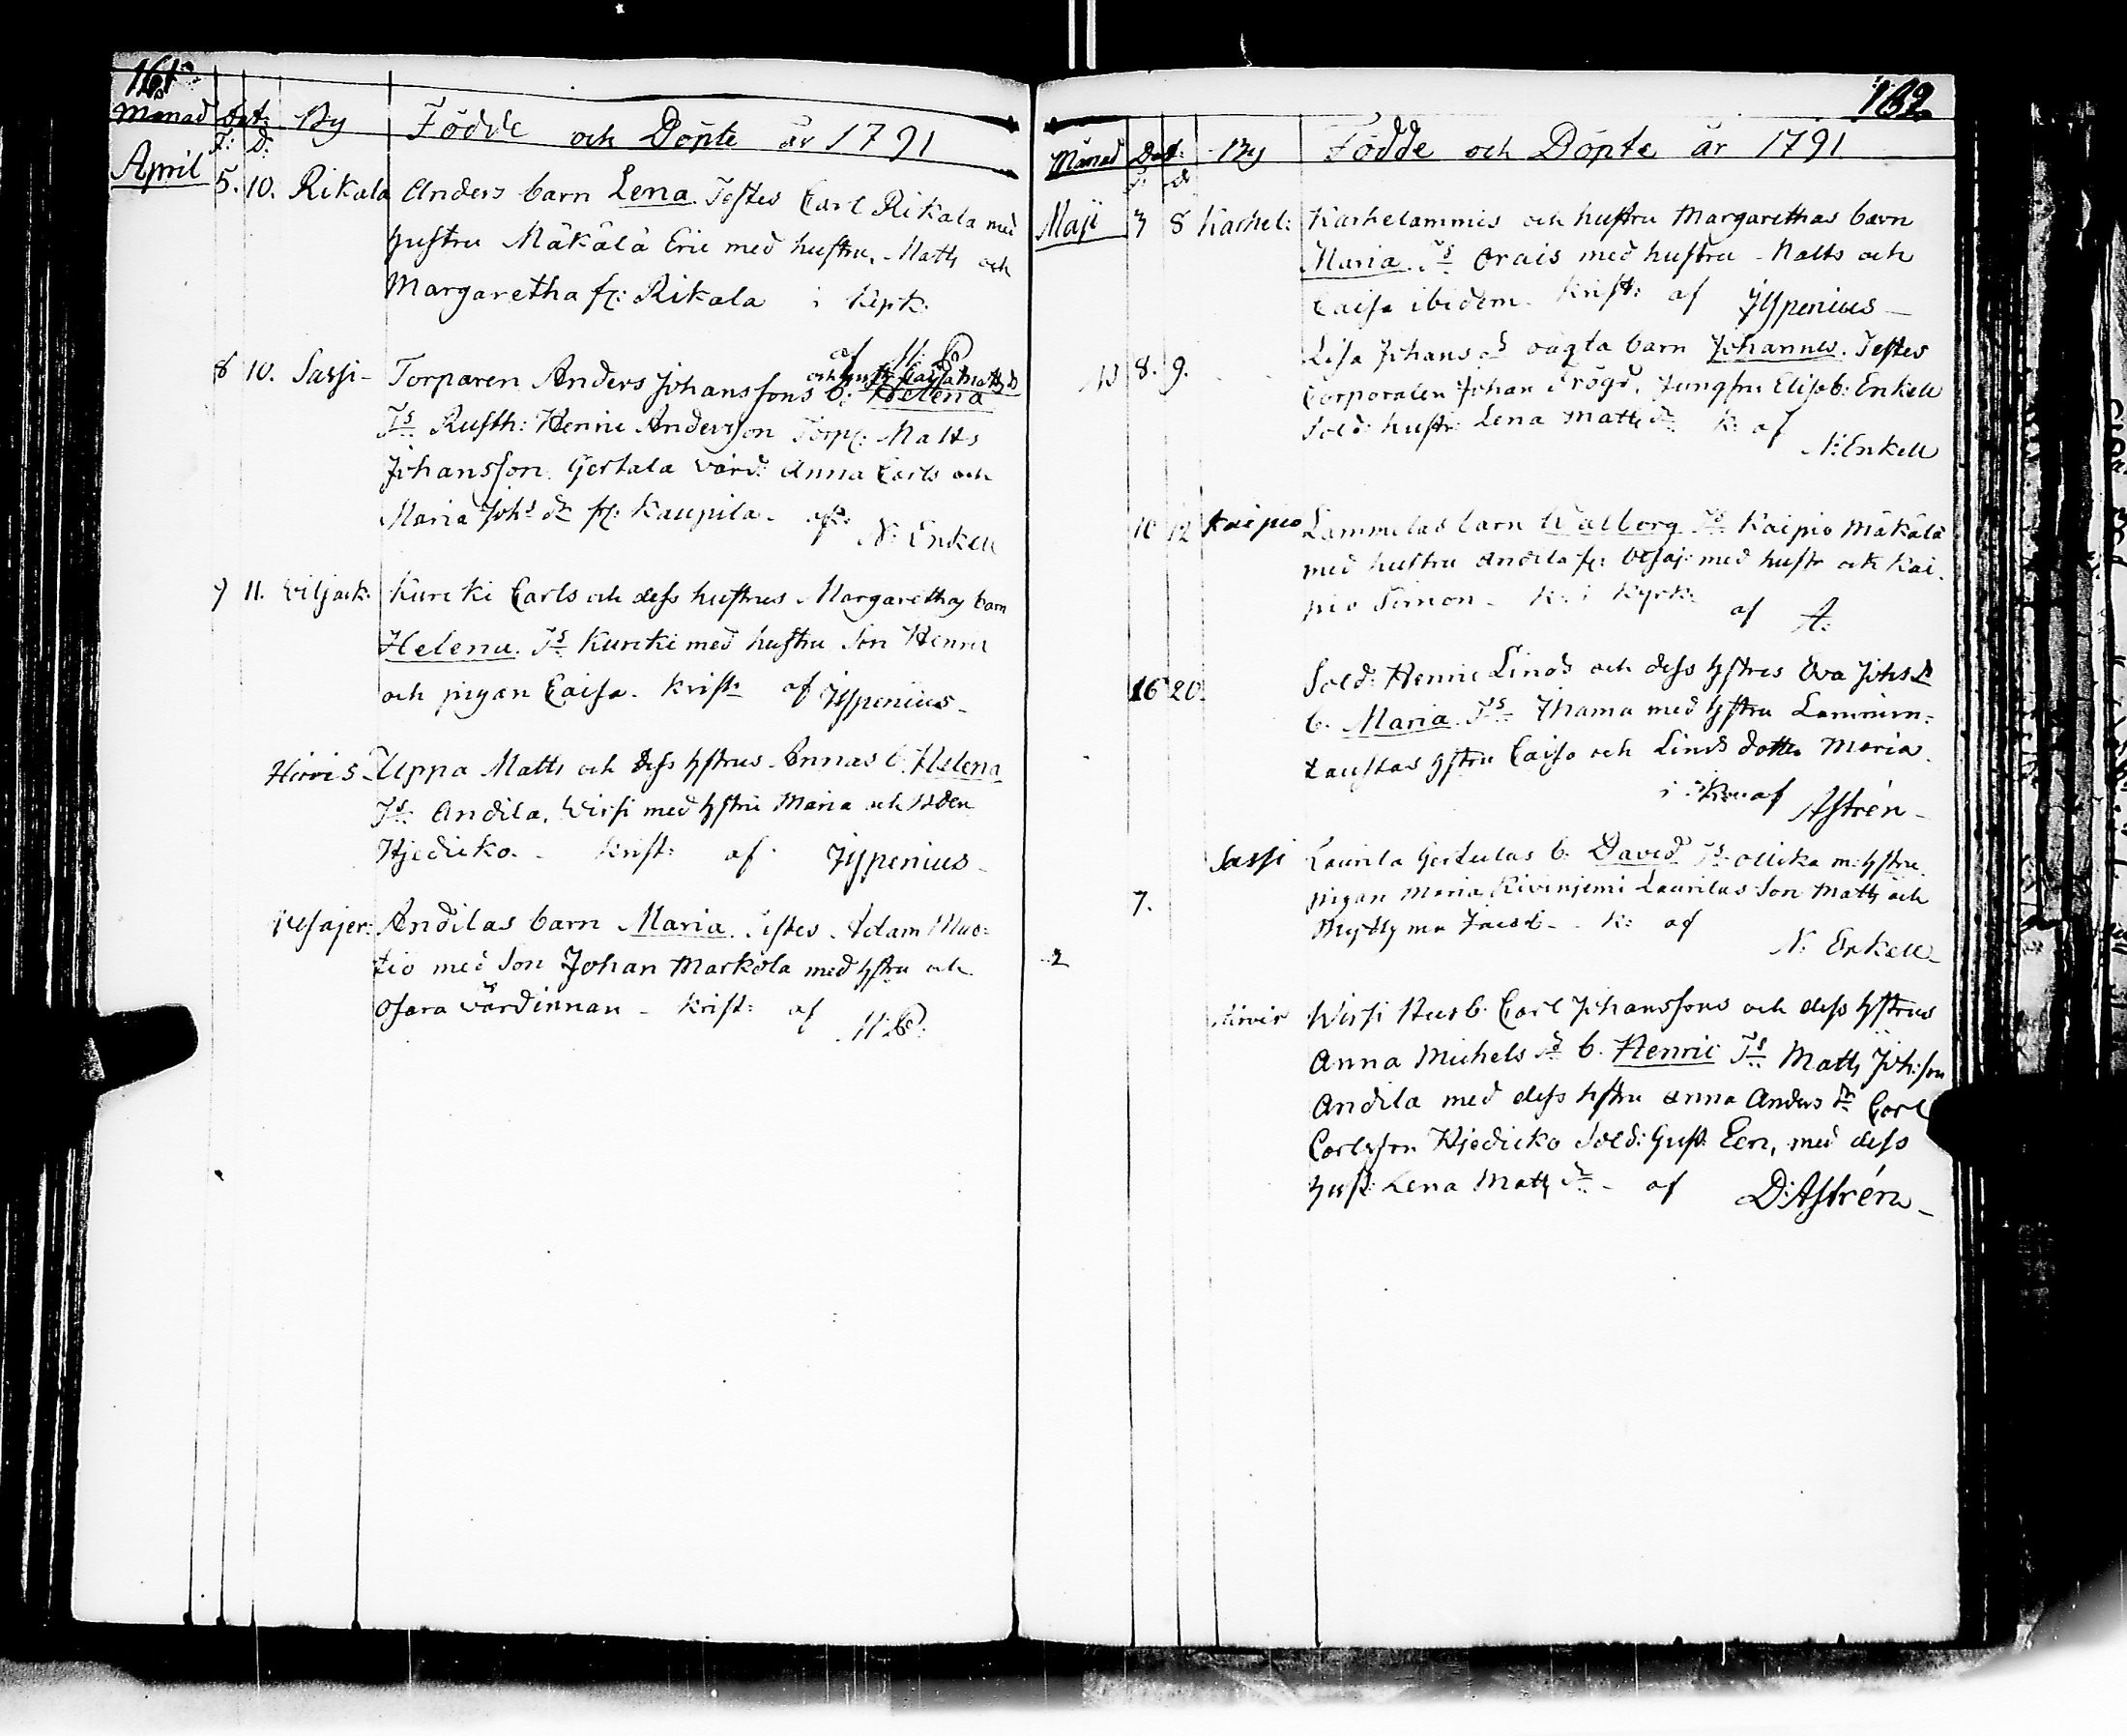 161
Månad Dat: By Födde och Döpte år 1791
F: D:
April 5. 10. Rikala Anders barn Lena. Testes Carl Rikala med
hustru Mäkälä Eric med hustru, Matts och
Margaretha fr: Rikala i Kyrk.
af
och hustr Caisa Matts D
8 10. Sassi - Torparen Anders Johanssons b: Helena
Ts Rusth: Henric Andersson Torp: Matts
Johansson Gertala värd: Anna Carls och
Maria Johs dr fr: Kaupila. af N: Enkell
9 11. Viljack: Kurcki Carls och dess hustrus Margarethas barn
Helena. Ts Kurcki med hustru Son Henric
och pigan Caisa. Krist: af Jypenius -
Hirvis - Uppa Matts och dess hstrus Annas b. Helena
Ts Andila, Wirsi med hstru Maria och
Hjedicko. - Krist: af Jypenius -
Andilas barn Maria. Testes Adam Muo-
tio med Son Johan Markola med hstru och
Ojara värdinnan - Krist: af
162
Månad Dat: By Födde och Döpte år 1791
Maji 3 8 Karhel: Karhelammis och hustru Margarethas barn
Maria. Ts Orais med hustru - Matts och
Caisa ibidem. Krist: af Jypenius -
8. 9. Lisa Johans dr oägta barn Johannes. Testes
Corporalen Johan Frögd, Jungfru Elisab: Enkell
Sold: hustr: Lena Matts dr K: af
N: Enkell
10 12 Kaipio Lammilas barn Walborg Ts Kaipio Mäkälä
med hustru Andila fr: med hustr och Kai-
pio Simon - K: i Kyrk: af A:
16 20. Sold: Henric Linds och dess hstrus Eva Johs D
b. Maria. Ts Mama med hstru Lammin-
taustas hstru Caisa och Linds dotter Maria.
i af Astrén -
Sassi Laurila Gertulas b. David Ts Ollika m: hstru
7. pigan Maria Kiviniemi Laurilas Son Matts och
K: af
N: Enkell -
2
Hirvis Wirsi Husb: Carl Johanssons och dess hstrus
Anna Michels dr b. Henric Ts Matts Joh:son
Andila med dess hstru Anna Anders dr Carl
Carlsson Hjedicko Sold: Gust: Een, med dess
hust: Lena Matts dr - af D: Astrén -